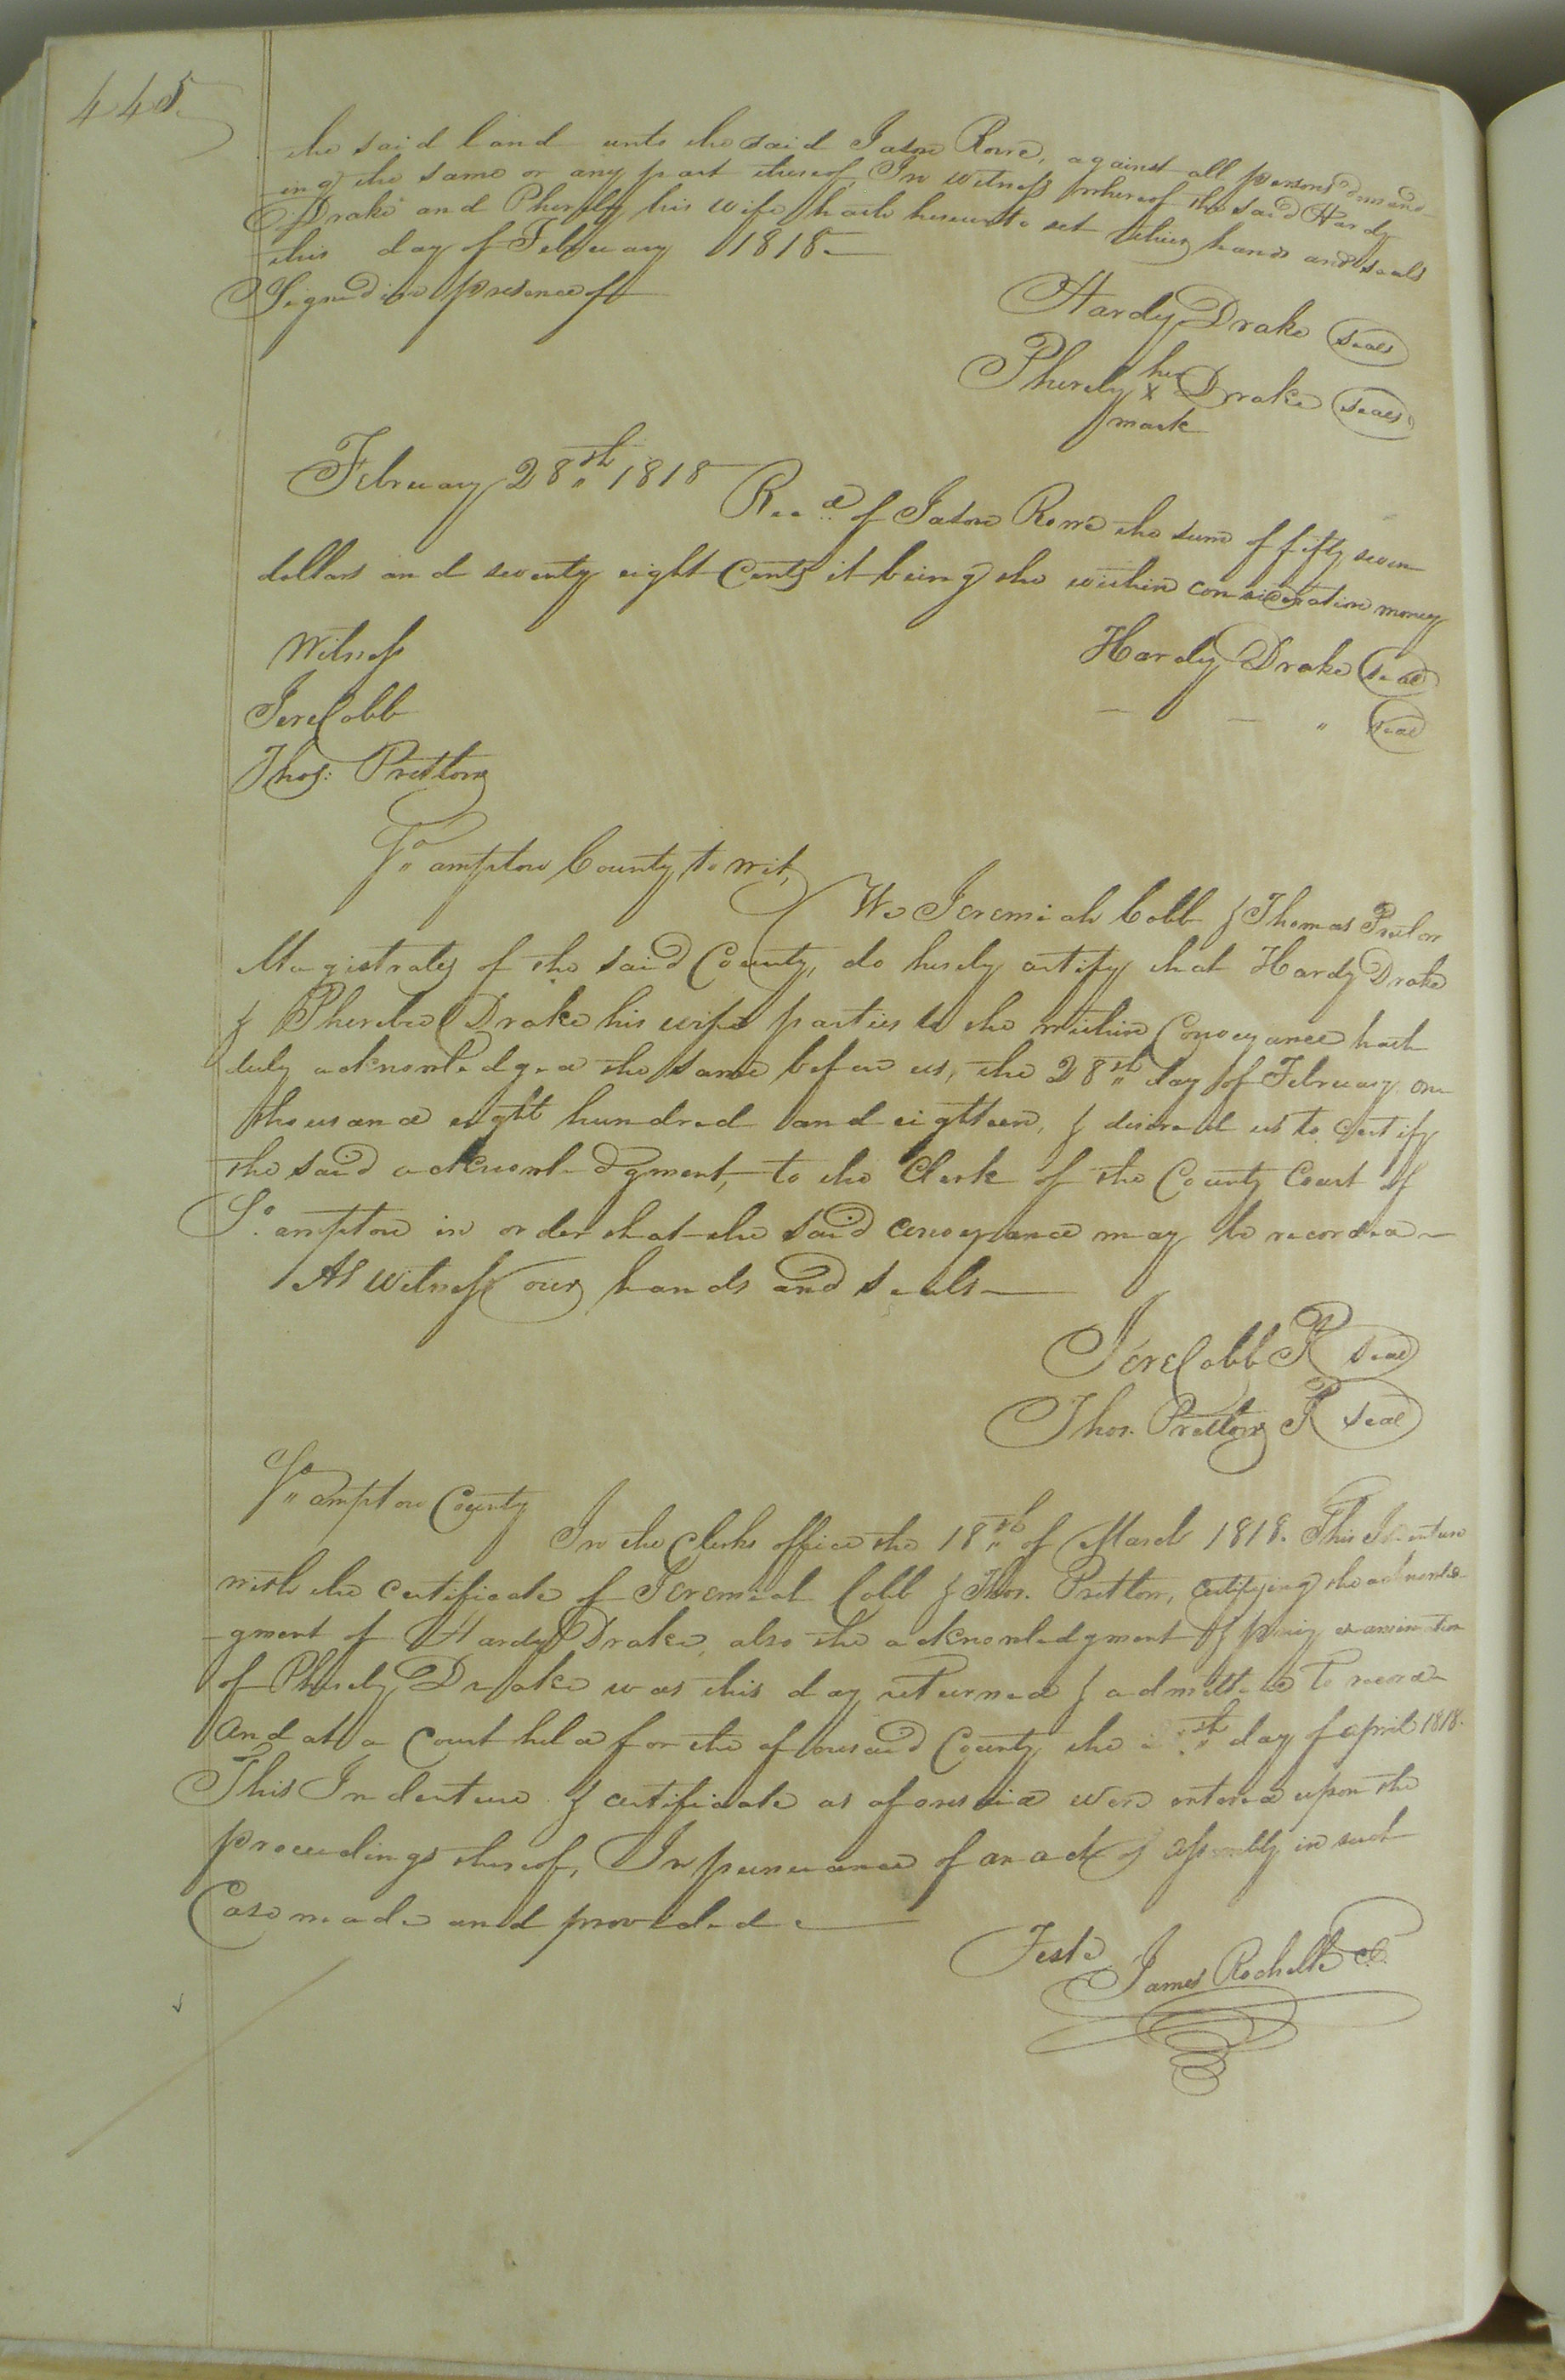 445
the said land unto the said Jason Rowe, against all persons demand-
-ing the same or any part thereof, In witness whereof the said Hardy
Drake and Pherely his wife hath hereunto set their hands and seals
this day of February 1818—
Signed in presence of
Hardy Drake seal
Pherely her x mark Drake seal
February 28th 1818
Recd of Jason Rowe the sum of fifty seven
dollars and seventy eight Cents it being the within consideration money
Witness
Hardy Drake seal
Jere Cobb
— — " seal
Thos: Pretlow
So ampton County, to wit,
We Jeremiah Cobb & Thomas Pretlow
Magistrates of the said County, do hereby certify that Hardy Drake
& Pherebe Drake his wife parties to the within Conveyance hath
duly acknowledged the same before us, the 28th day of February one
thousand eight hundred and eighteen, & desired us to certify
the said acknowledgment, to the Clerk of the County Court of
So. ampton in order that the said conveyance may be recorded—
As Witness our hands and seals—
Jere Cobb seal
Thos. Pretlow seal
So ampton County
In the Clerks office the 18th of March 1818. This Indenture
with the certificate of Jeremiah Cobb & Thos. Pretlow, certifying the acknowled-
-gment of Hardy Drake, also the acknowledgment & privy examination
of Pherely Drake was this day returned & admitted to record
And at a Court held for the aforesaid County the day of April 1818.
This Indenture & certificate as aforesaid were entered upon the
proceedings thereof, In pursuance of an act of assembly in such
Case made and provided—
Teste
James Rochelle